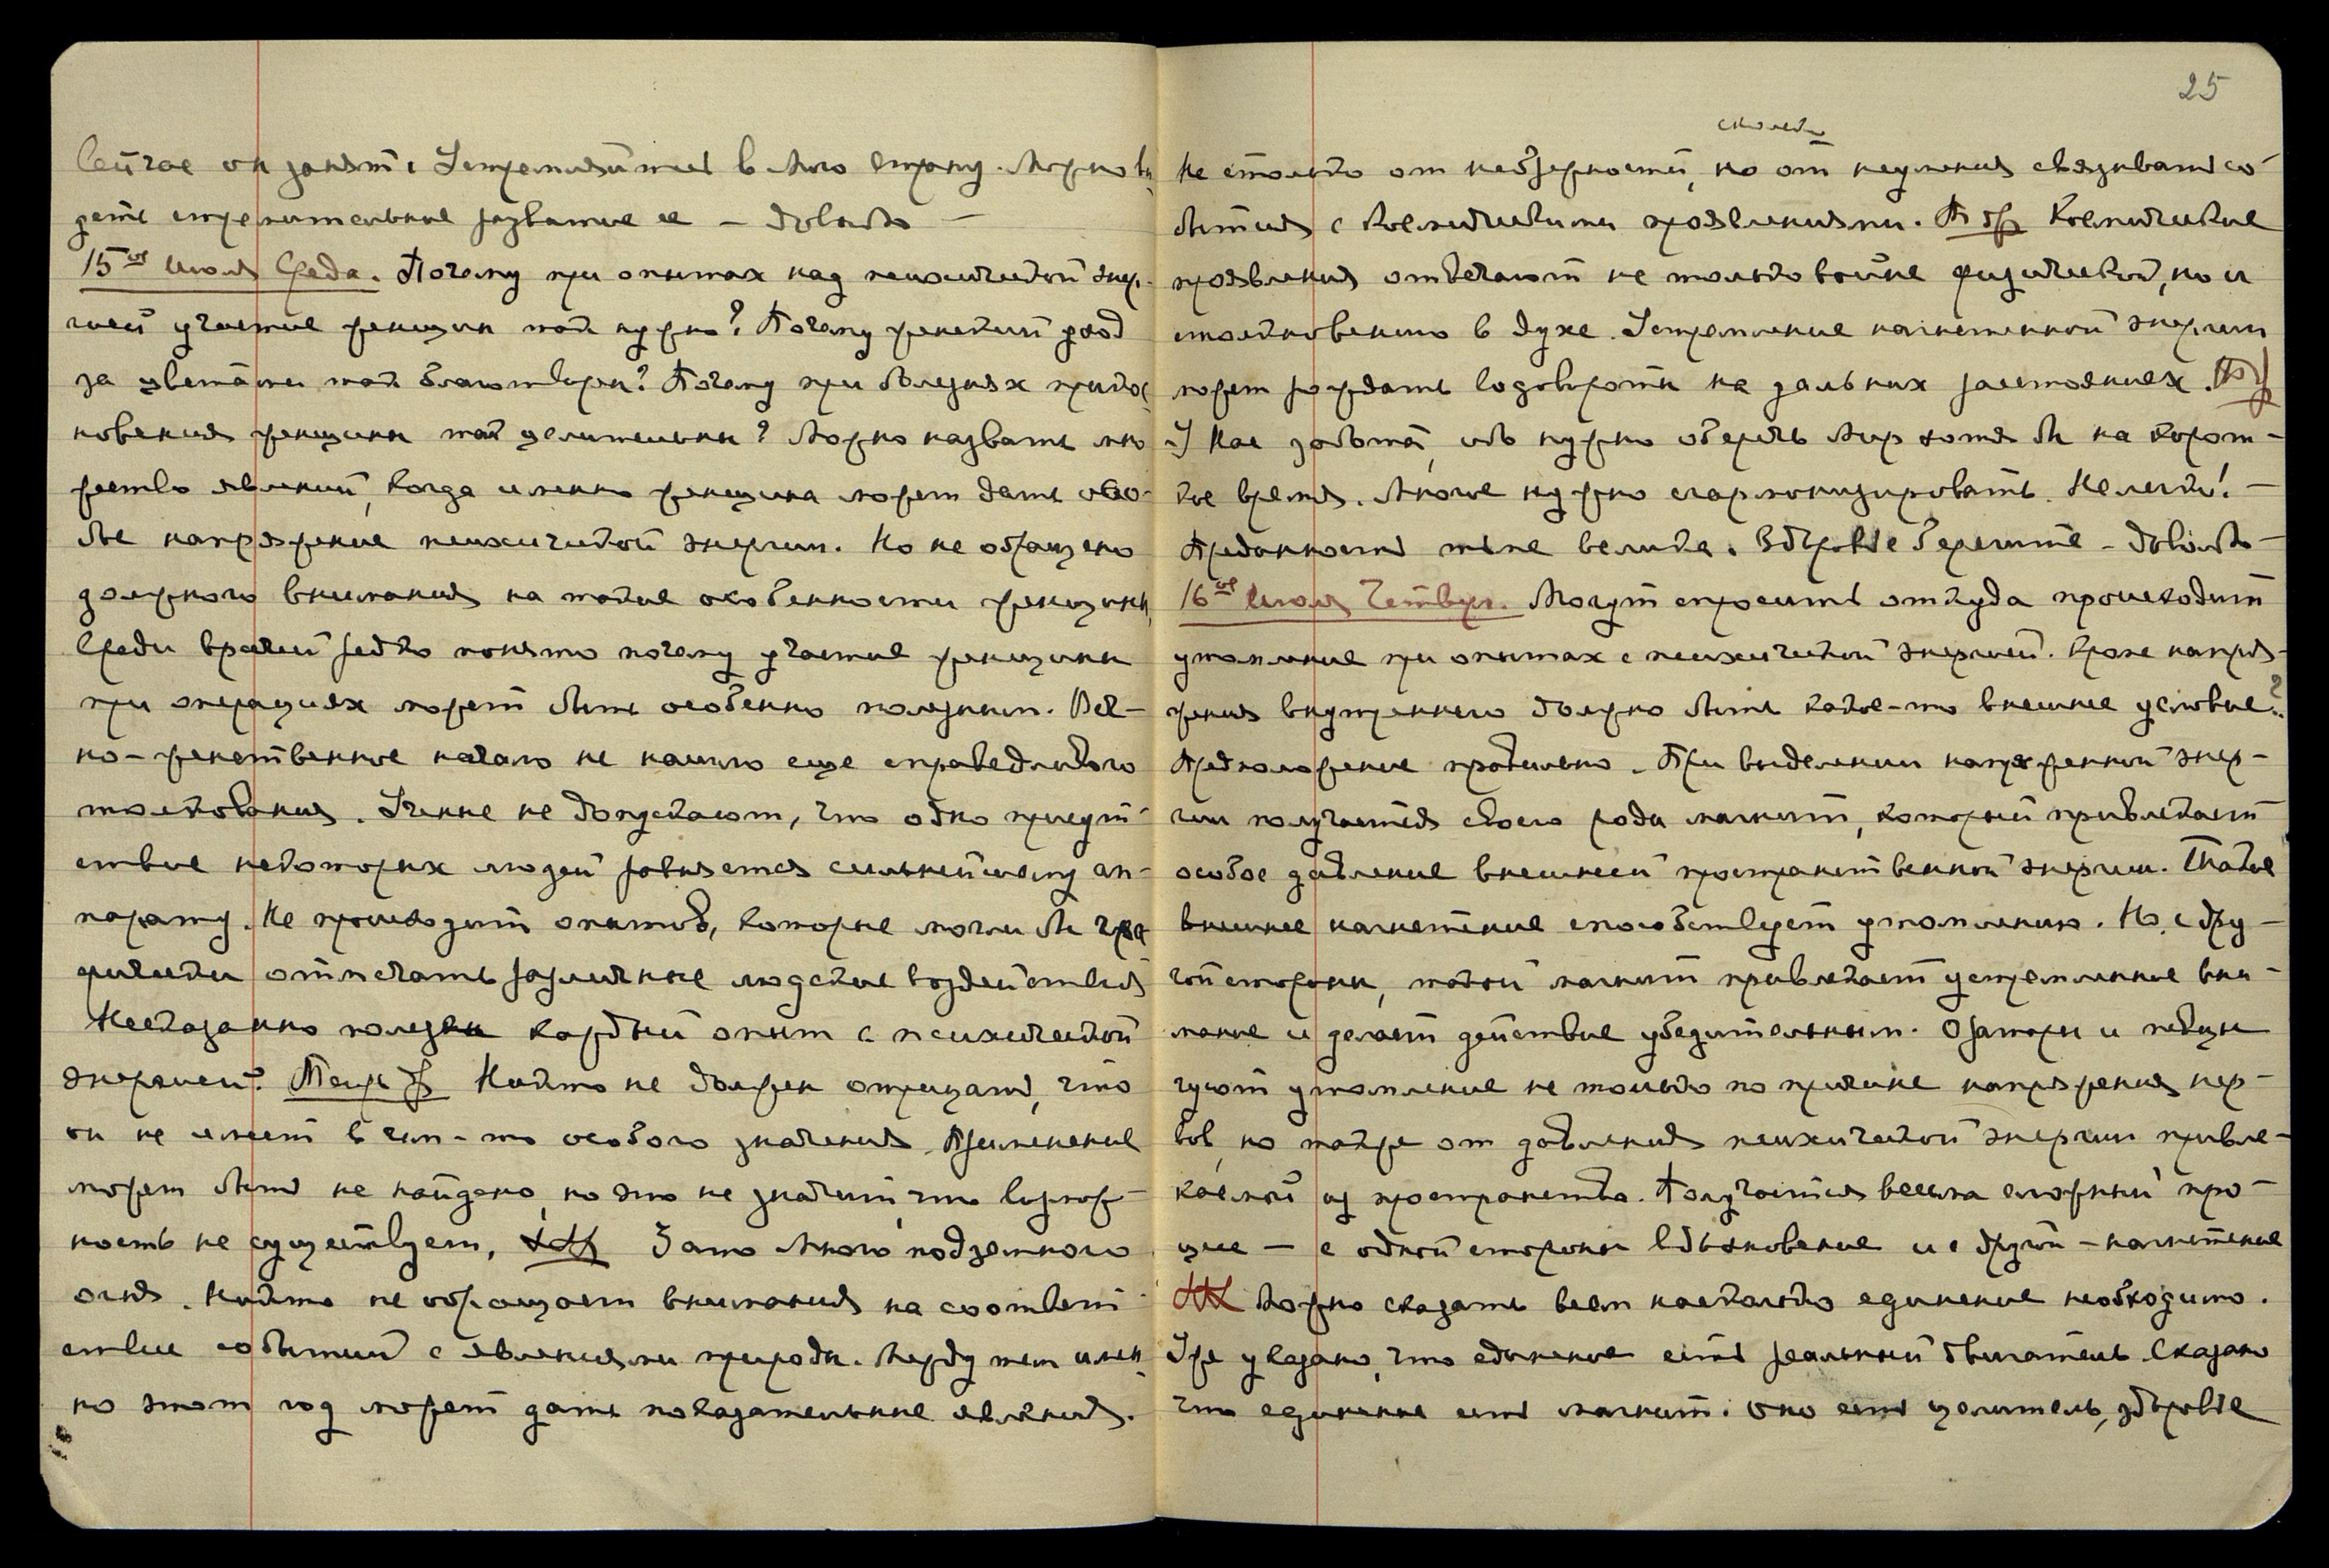 Сейчас он занят. Устремляйтесь в Мою Страну. Можно ви-
деть стремительное развитие ее — Довольно —
15ое Июля Среда. Почему при опытах над психической энер-
гией участие женщин так нужно? Почему женский уход
за цветами так благотворен? Почему при болезнях прикос-
новения женщины так целительны? Можно назвать мно-
жество явлений, когда именно женщина может дать осо-
бое напряжение психической энергии. Но не обращено
должного внимания на такие особенности женщины,
Среди врачей редко понято почему участие женщины
при операциях может быть особенно полезным. Веч-
но-женственное начало не нашло еще справедливого
толкования. Ученые не допускают, что одно присут-
ствие некоторых людей равняется сильнейшему ап-
парату. Не производят опытов, которые могли бы гра
фически отмечать различные людские воздействия
Несказанно полезен каждый опыт с психической
энергией. Никто не должен отрицать, что
он не имеет в чем-то особого значения Применение
может быть не найдено, но это не значит, что возмож-
ность не существует, Зато много подземного
огня. Никто не обращает внимания на соответ-
ствие событий с явлениями природы. Между тем имен-
но этот год может дать показательные явления.
25
сколько
Не столько от небрежности, но от неумения связывать со-
бытия с космическими проявлениями. Космические
проявления отвечают не только войне физической, но и
столкновению в духе. Устремление нагнетенной энергии
может рождать водовороты на дальних расстояниях.
У Нас забота, ибо нужно сберечь Мир хотя бы на корот-
кое время. Многое нужно сгармонизировать. Нелегко! —
Преданность твоя велика. Здоровье берегите — Довольно —
16ое Июля Четверг. Могут спросить откуда происходит
утомление при опытах с психической энергией. Кроме напря-
жения внутреннего должно быть какое-то внешнее условие?
Предположение правильно. При выделении напряженной энер-
гии получается своего рода магнит, который привлекает
особое давление внешней пространственной энергии. Такое
внешнее нагнетение способствует утомлению. Но, с дру-
гой стороны, такой магнит привлекает устремленное вни-
мание и делает действие убедительным. Ораторы и певцы
чуют утомление не только по причине напряжения нер-
вов, но также от давления психической энергии привле-
каемой из пространства. Получается весьма сложный про-
цесс — с одной стороны вдохновение и с другой — нагнетение
Можно сказать всем насколько единение необходимо.
Уже указано, что единение есть реальный двигатель. Сказано
что единение есть магнит. Оно есть целитель, здоровье